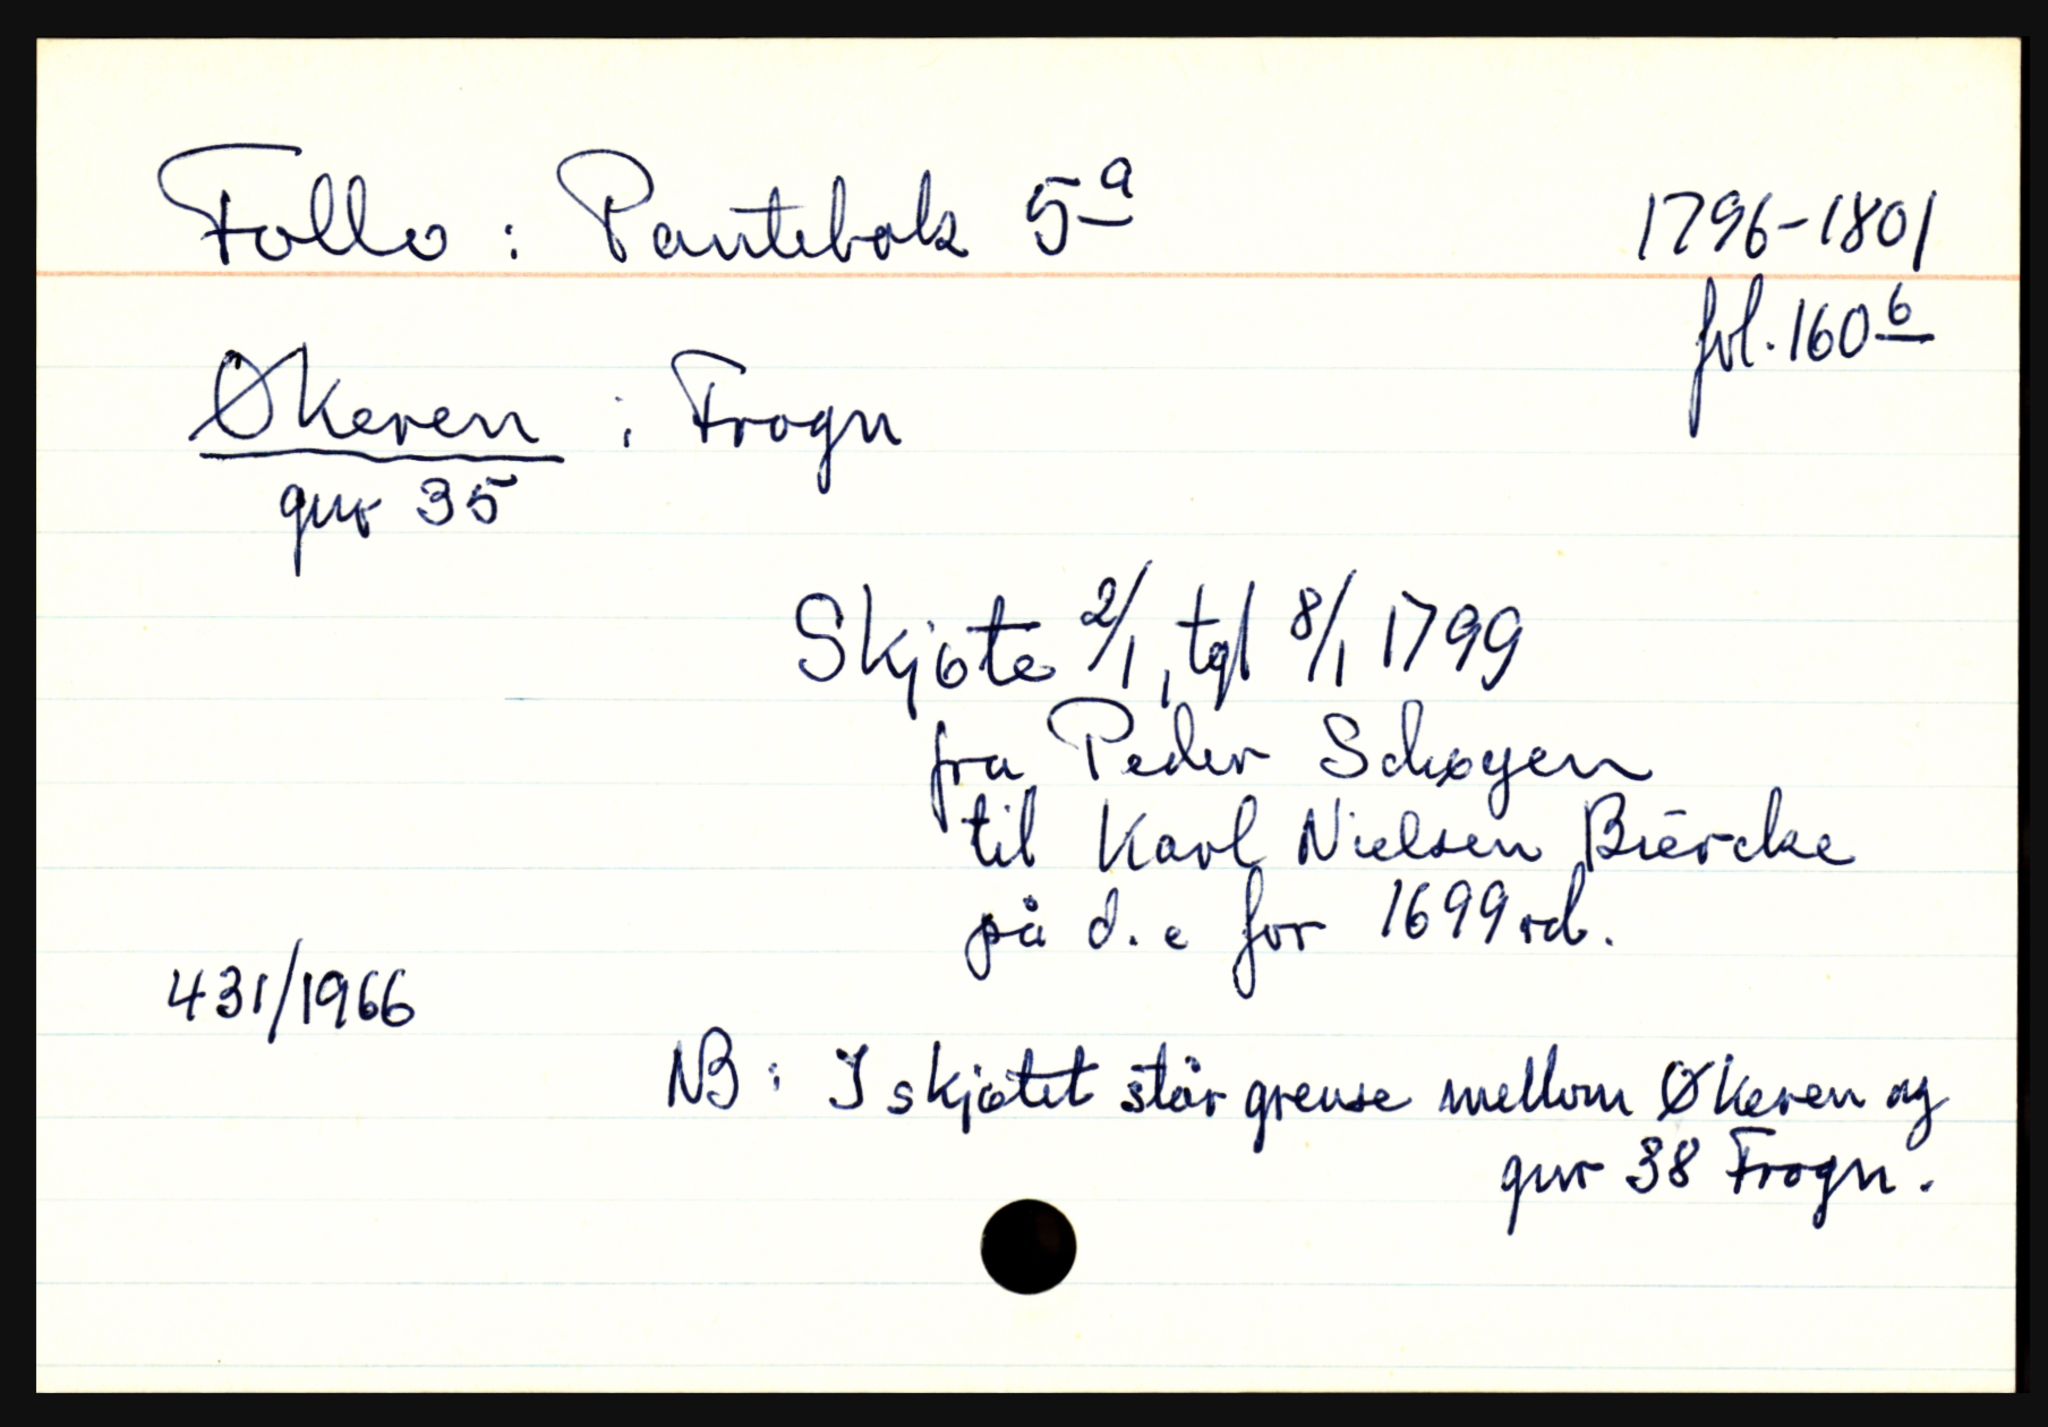 Follo : Pantebok 5a 1796-1801
fol. 160b
Økeren i Frogn
gnr 35
Skjøte 2/1, tgl 8/1 1799
fra Peder Schøyen
til Karl Nielsen Biercke
på d.e for 1699 rd.
431/1966
NB: I skjøtet står grense mellom Økeren og
gnr 38 Frogn.